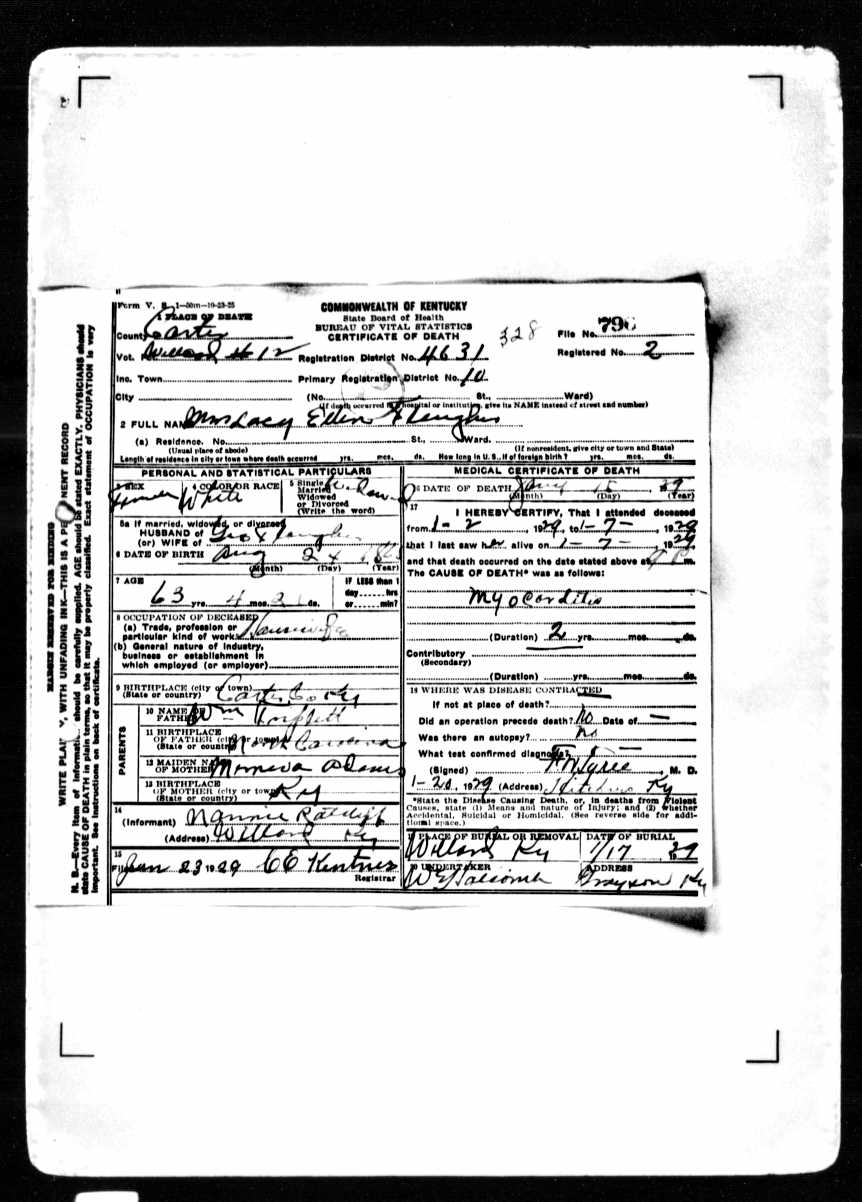 Form V. S. 1—50m—10-23-25
1 PLACE OF DEATH
County Carter
Vot. Willard # 12
Inc. Town
City
COMMONWEALTH OF KENTUCKY
State Board of Health
BUREAU OF VITAL STATISTICS
CERTIFICATE OF DEATH
328
File No. 796
Registered No. 2
Registration District No. 4631
Primary Registration District No. 10
(No. St., Ward)
(If death occurred in a hospital or institution, give its NAME instead of street and number)
2 FULL NAME Mrs Lacy Ellen
(a) Residence. No. St., Ward.
(Usual place of abode) (If nonresident, give city or town and State)
Length of residence in city or town where death occurred yrs. mos. ds. How long in U. S., if of foreign birth? yrs. mos. ds.
PERSONAL AND STATISTICAL PARTICULARS
3 SEX Female
4 COLOR OR RACE White
5 Single Married Widowed or Divorced (Write the word) Widowed
5a If married, widowed, or divorced
HUSBAND of Geo
(or) WIFE of
6 DATE OF BIRTH Aug 24
(Month) (Day) (Year)
7 AGE 63 yrs. 4 mos. ds.
IF LESS than 1 day hrs or min?
8 OCCUPATION OF DECEASED
(a) Trade, profession or particular kind of work Housewife
(b) General nature of industry, business or establishment in which employed (or employer)
9 BIRTHPLACE (city or town) Carter Co Ky
(State or country)
PARENTS
10 NAME OF FATHER Wm
11 BIRTHPLACE OF FATHER (city or town) North Carolina
(State or country)
12 MAIDEN NAME OF MOTHER Adams
13 BIRTHPLACE OF MOTHER (city or town) Ky
(State or country)
14
(Informant) Nannie Ratcliff
(Address) Willard Ky
15
Filed Jan 23 1929 C E Kintner
Registrar
MEDICAL CERTIFICATE OF DEATH
16 DATE OF DEATH 15 29
(Month) (Day) (Year)
17
I HEREBY CERTIFY, That I attended deceased
from 1-2, 1929, to 1-7-, 1929
that I last saw her alive on 1-7-, 1929
and that death occurred on the date stated above at m.
The CAUSE OF DEATH* was as follows:
Myocarditis
(Duration) 2 yrs. mos. ds.
Contributory
(Secondary)
(Duration) yrs. mos. ds.
18 WHERE WAS DISEASE CONTRACTED
If not at place of death?
Did an operation precede death? No Date of —
Was there an autopsy? no
What test confirmed diagnosis? —
(Signed) M. D.
1-20, 1929 (Address) Hitchins Ky
*State the Disease Causing Death, or, in deaths from Violent
Causes, state (1) Means and nature of Injury; and (2) whether
Accidental, Suicidal or Homicidal. (See reverse side for addi-
tional space.)
19 PLACE OF BURIAL OR REMOVAL Willard Ky
DATE OF BURIAL 1/17 1929
20 UNDERTAKER
ADDRESS Grayson Ky
MARGIN RESERVED FOR BINDING
WRITE PLAINLY, WITH UNFADING INK—THIS IS A PERMANENT RECORD
N. B.—Every item of information should be carefully supplied. AGE should be stated EXACTLY. PHYSICIANS should
state CAUSE OF DEATH in plain terms, so that it may be properly classified. Exact statement of OCCUPATION is very
important. See instructions on back of certificate.